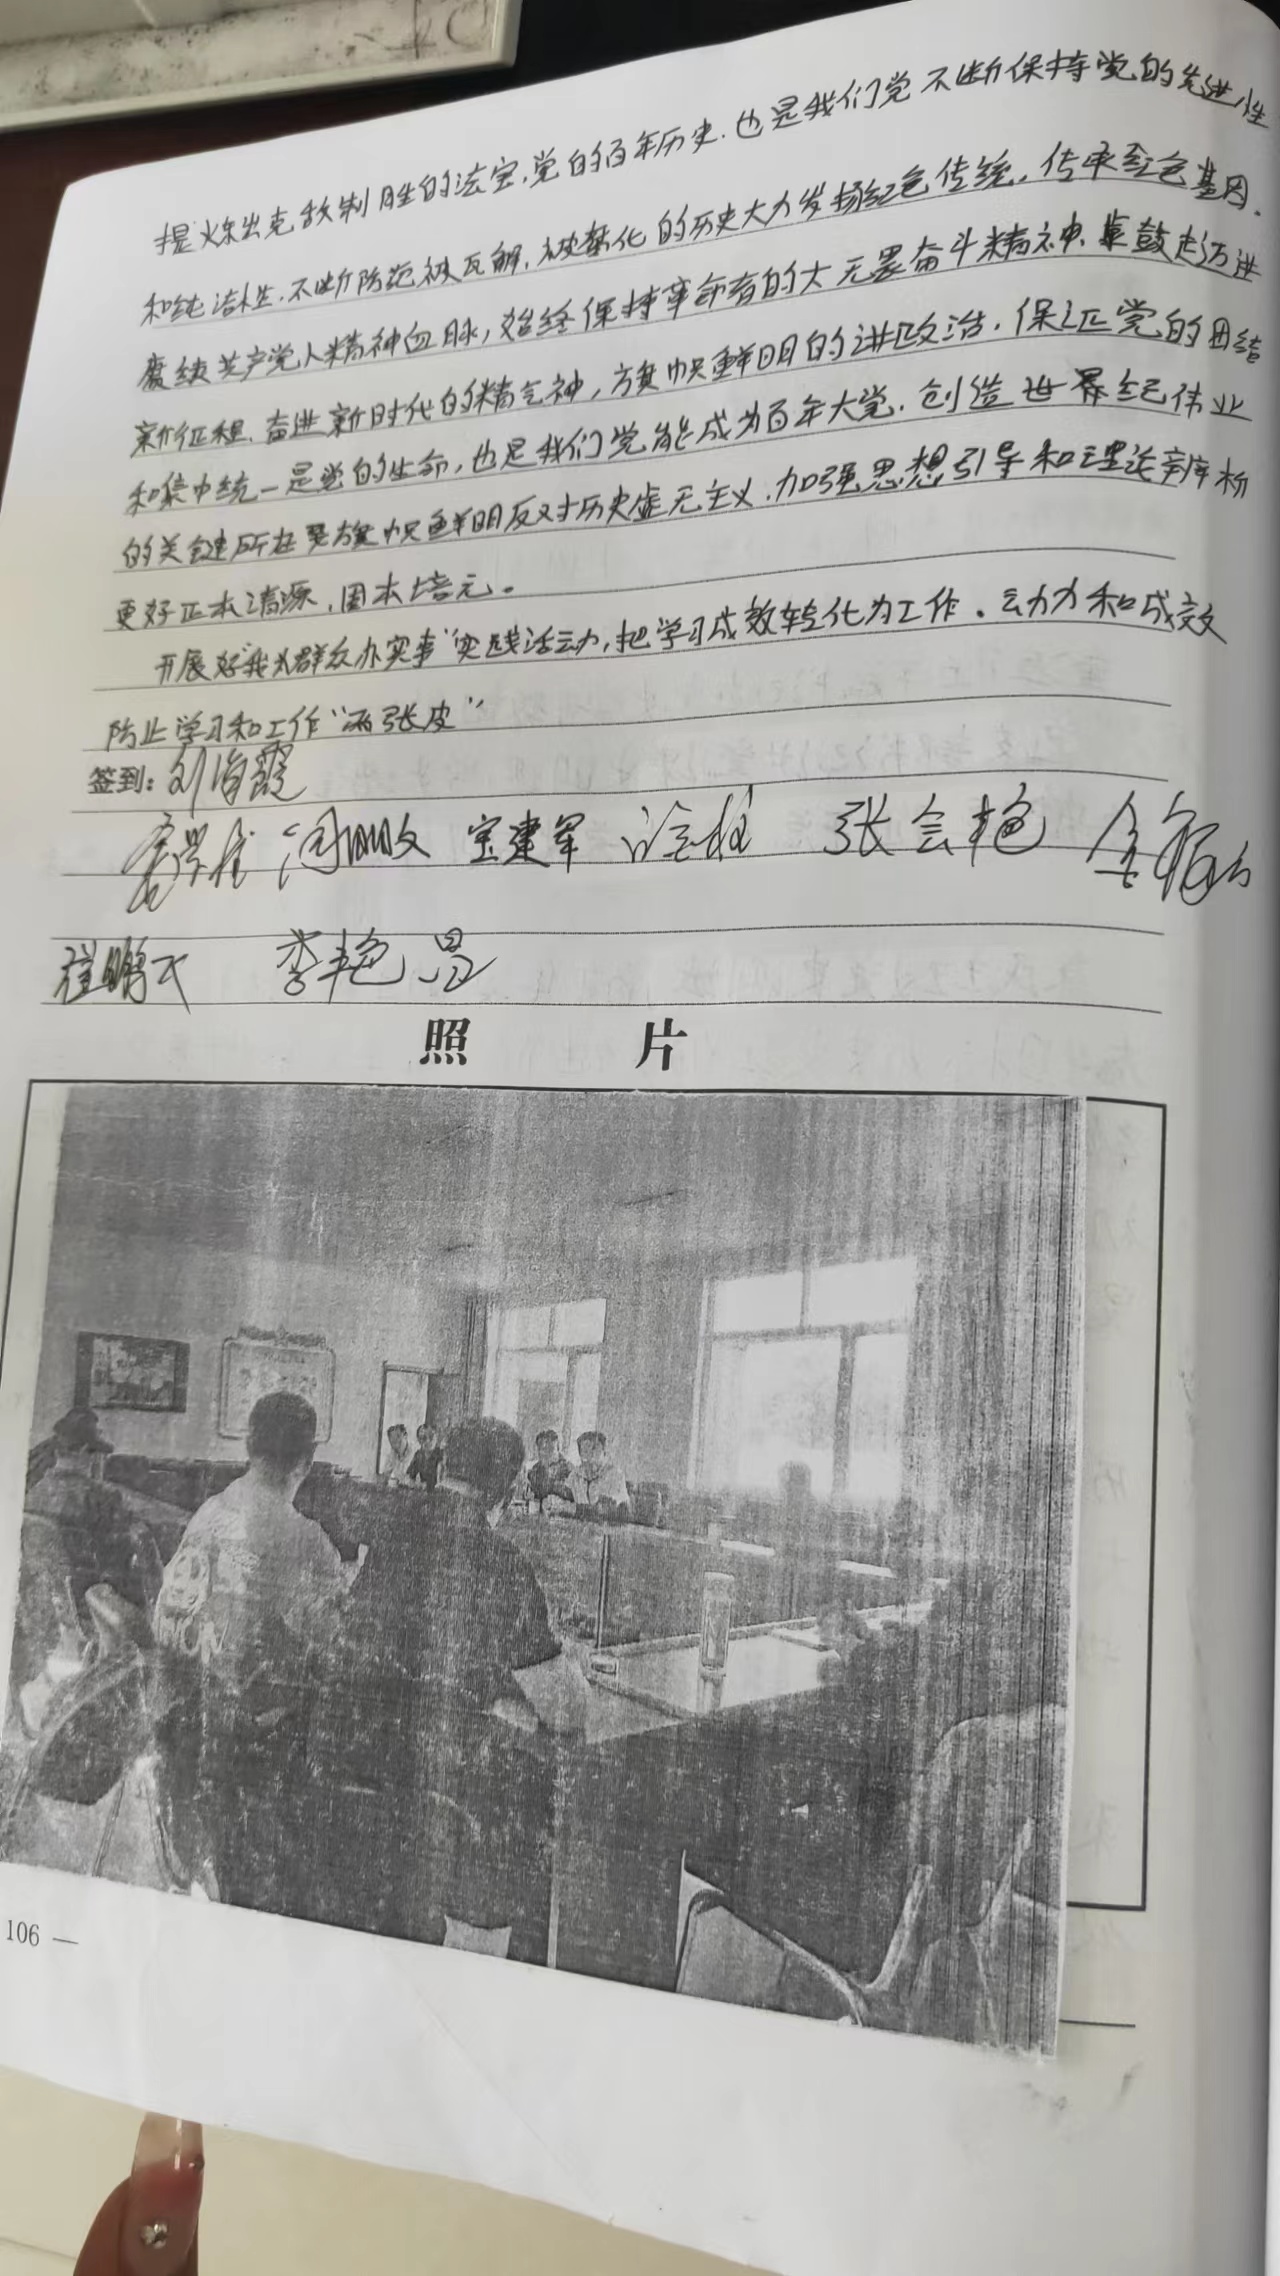 提炼出克敌制胜的法宝,党的百年历史.也是我们党不断保持党的先进性
和纯洁性.不断防范被瓦解.被腐化的历史大力发扬红色传统.传承红色基因.
赓续共产党人精神血脉,始终保持革命者的大无畏奋斗精神.鼓起迈进
新征程.奋进新时代的精气神,旗帜鲜明的讲政治.保证党的团结
和集中统一是党的生命,也是我们党能成为百年大党.创造世纪伟业
的关键所在要旗帜鲜明反对历史虚无主义.加强思想引导和理论辨析
更好正本清源,固本培元。
开展好"我为群众办实事"实践活动,把学习成效转化为工作.动力和成效
防止学习和工作"两张皮"
签到:刘海霞
宝建军 张会艳
李艳
照片
106 —